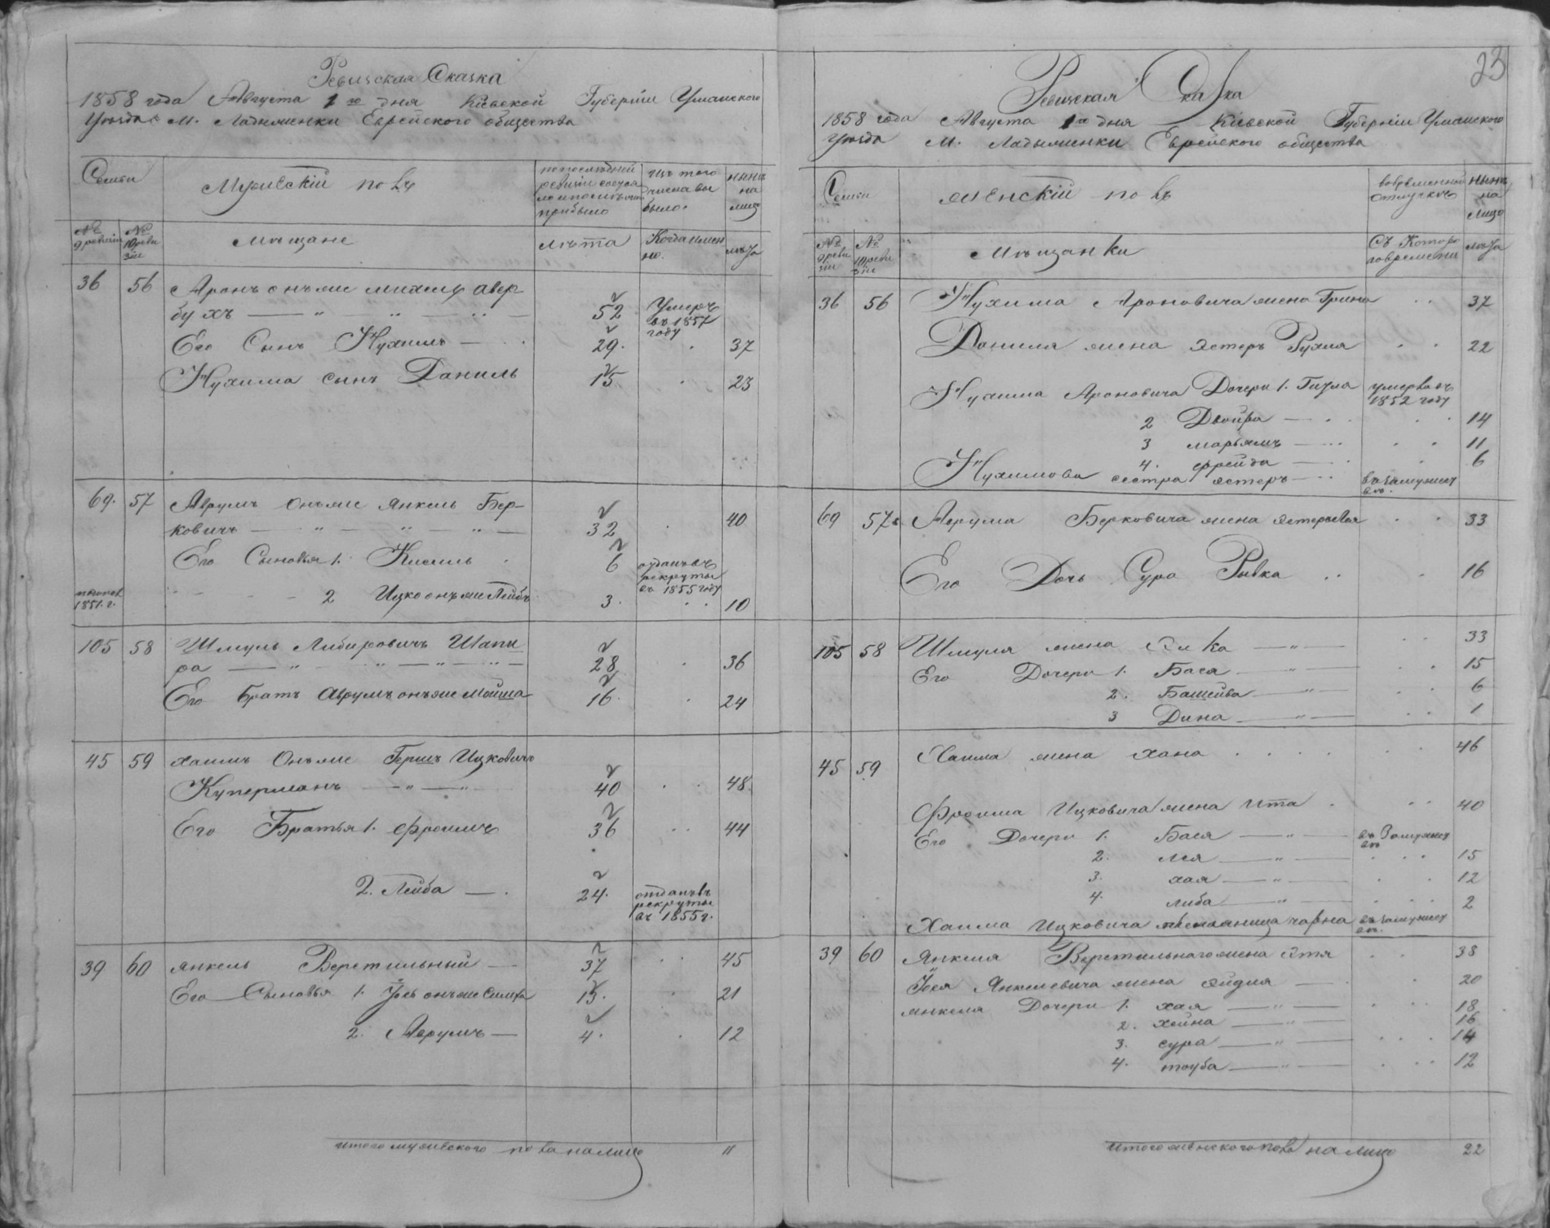 Ревизская Сказка
1858 года Августа 1го дня Кіевской Губерніи Уманского
Уезда М. Ладыженки Еврейского общества
Семьи
Мужескій полъ
по последней ревизии состояло и после того прибыло
изъ того числа выбыло
ныне на лицо
№ 9 ревизіи
№ 10 ревизіи
Мещане
лета
Когда именно
лета
36 56 Аронъ онъже Авер-
бухъ 52 Умеръ въ 1857 году
Его Сынъ Нухимъ 29 37
Нухима сынъ Даниль 15 23
69 57 Аврумъ онъже Янкель Бер-
ковичъ 32 40
Его Сыновья 1. 6 отданъ въ рекруты въ 1855 году
1851 г. 2 Ицко онъже Лейбъ 3 10
105 58 Шмуль Либировичъ Шапи
ра 28 36
Его Братъ Аврумъ онъже Мойша 16 24
45 59 Хаимъ Онъже Гершъ Ицковичъ
Куперманъ 40 48
Его Братья 1. Фроимъ 36 44
2. Лейба 24 отданъ въ рекруты въ 1855 г.
39 60 Янкель Веретильный 37 45
Его Сыновья 1. онъже 13 21
2. Аврумъ 4 12
итого мужеского пола на лицо 11
23
Ревизская Сказка
1858 года Августа 1го дня Кіевской Губерніи Уманского
Уезда М. Ладыженки Еврейского общества
Семьи
Женскій полъ
во временной отлучке
ныне на лицо
№ 9 ревизіи
№ 10 ревизіи
Мещанки
Съ которого времени
лета
36 56 Нухима Ароновича жена Грина 37
Даниля жена Эстеръ Рухля 22
Нухима Ароновича Дочери 1. Гитля умерла въ 1852 году
2 Двойра 14
3 Марьямъ 11
4. Фрейда 6
Нухимова сестра Эстеръ въ замужестве
69 57 Аврума Берковича жена 33
Его Дочь Сура Ривка 16
105 58 Шмуля жена 33
Его Дочери 1. Бася 15
2. Башейва 6
3 Дина 1
45 59 Хаима жена Хана 46
Фроима Ицковича жена Ита 40
Его Дочери 1. Бася въ Замужестве
2. Лея 15
3. Хая 12
4. Либа 2
Хаима Ицковича Чарна въ замужестве
39 60 Янкеля Веретильного жена Этя 38
Янкелевича жена 20
Янкеля Дочери 1. Хая 18
2. Хейна 16
3. Сура 14
4. Тауба 12
итого женского пола на лицо 22